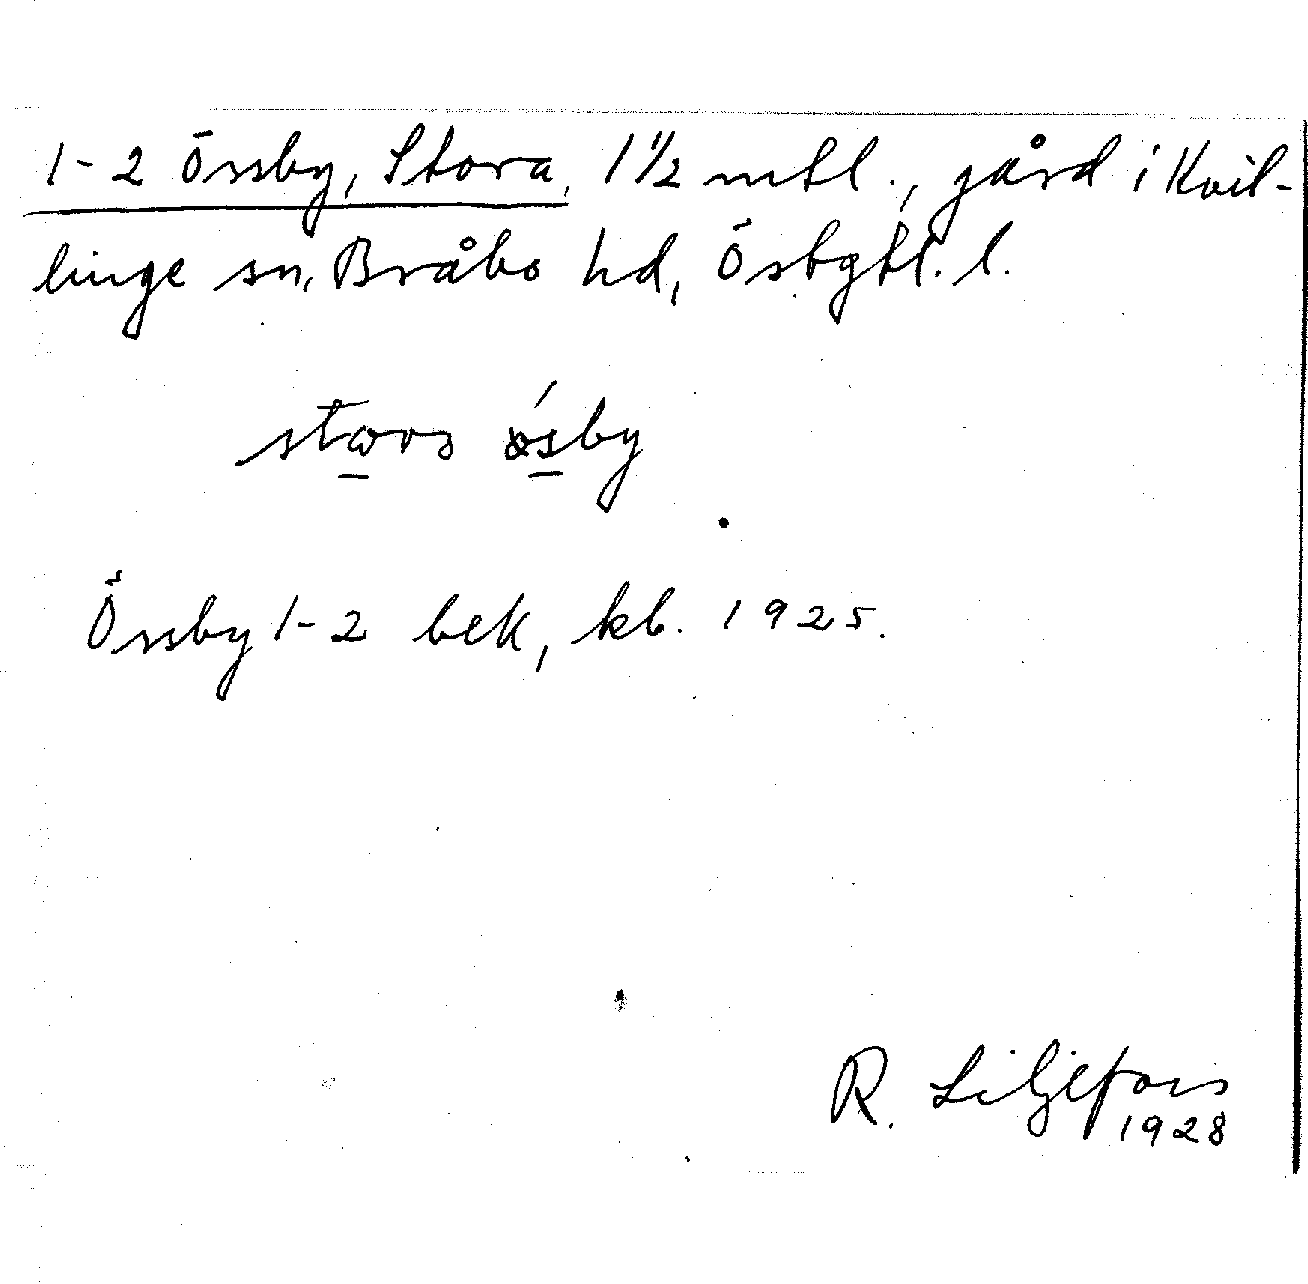 1-2 Örsby, Stora, 1 1/2 mtl., gård i Kvil-
linge sn, Bråbo hd, Östgtl. l.
Örsby 1-2 bek, kb. 1925.
R. Liljefors
1928